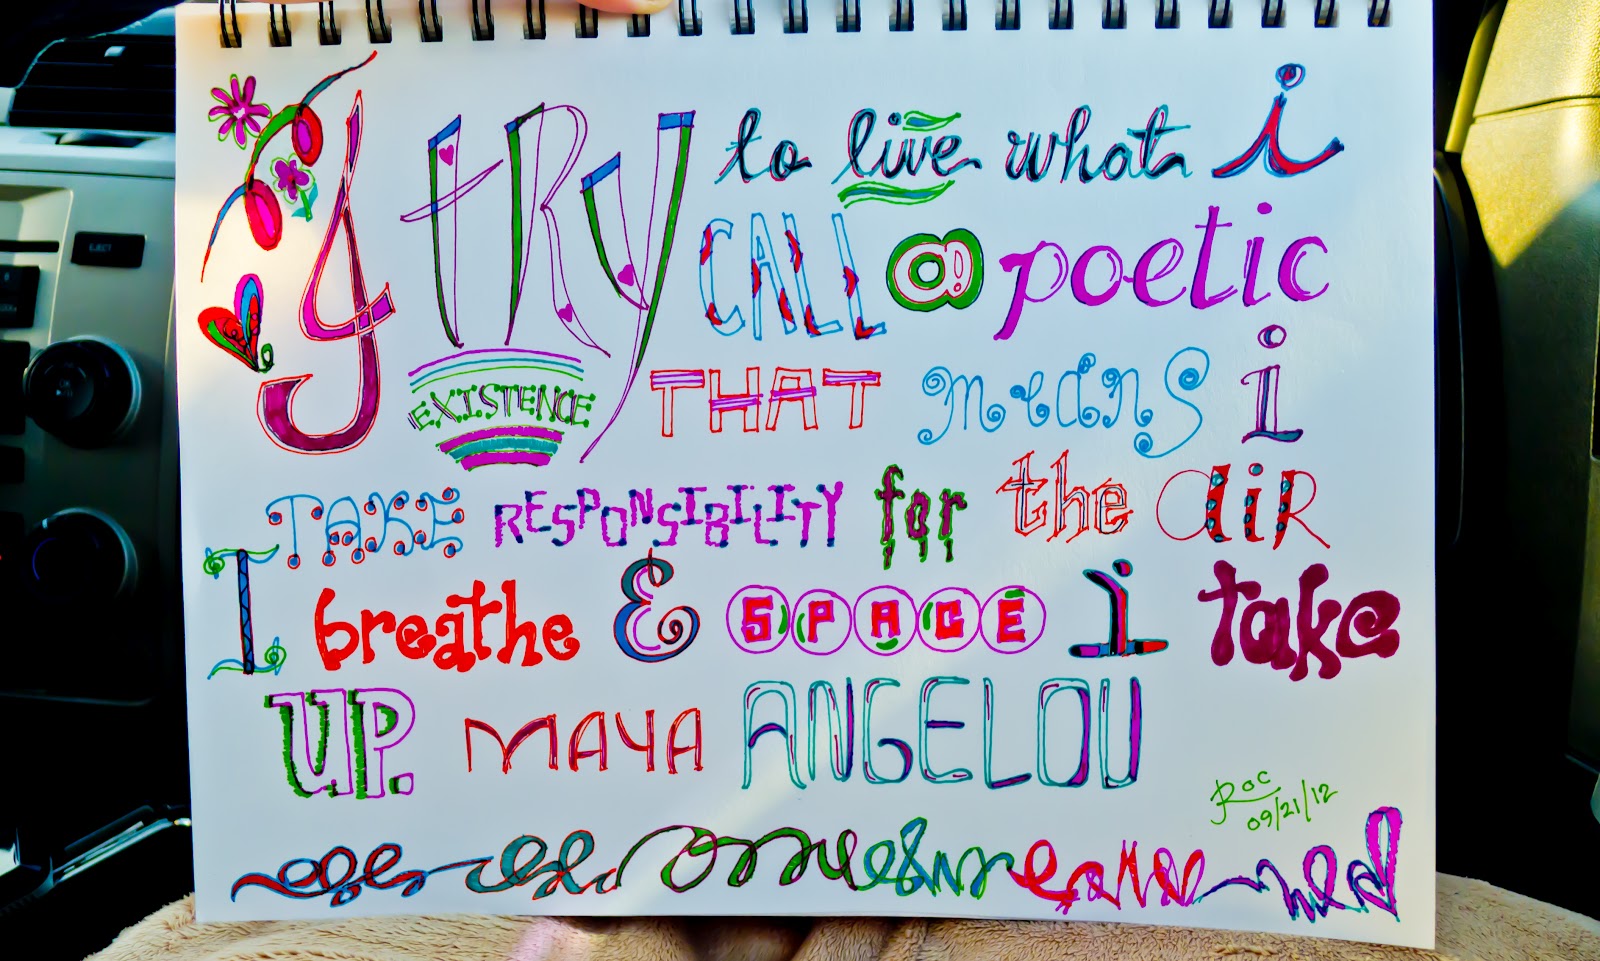 I TRY to live what i
CALL a poetic
EXISTENCE THAT means i
TAKE RESPONSIBILITY for the aiR
I breathe & SPACE i take
UP. MAYA ANGELOU
Roc
09/21/12
EJECT